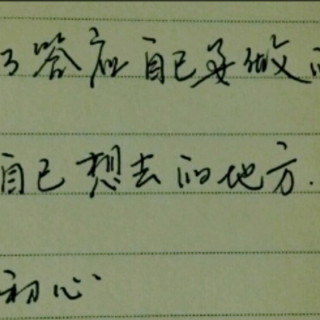 了答应自己要做
自己想去的地方.
初心